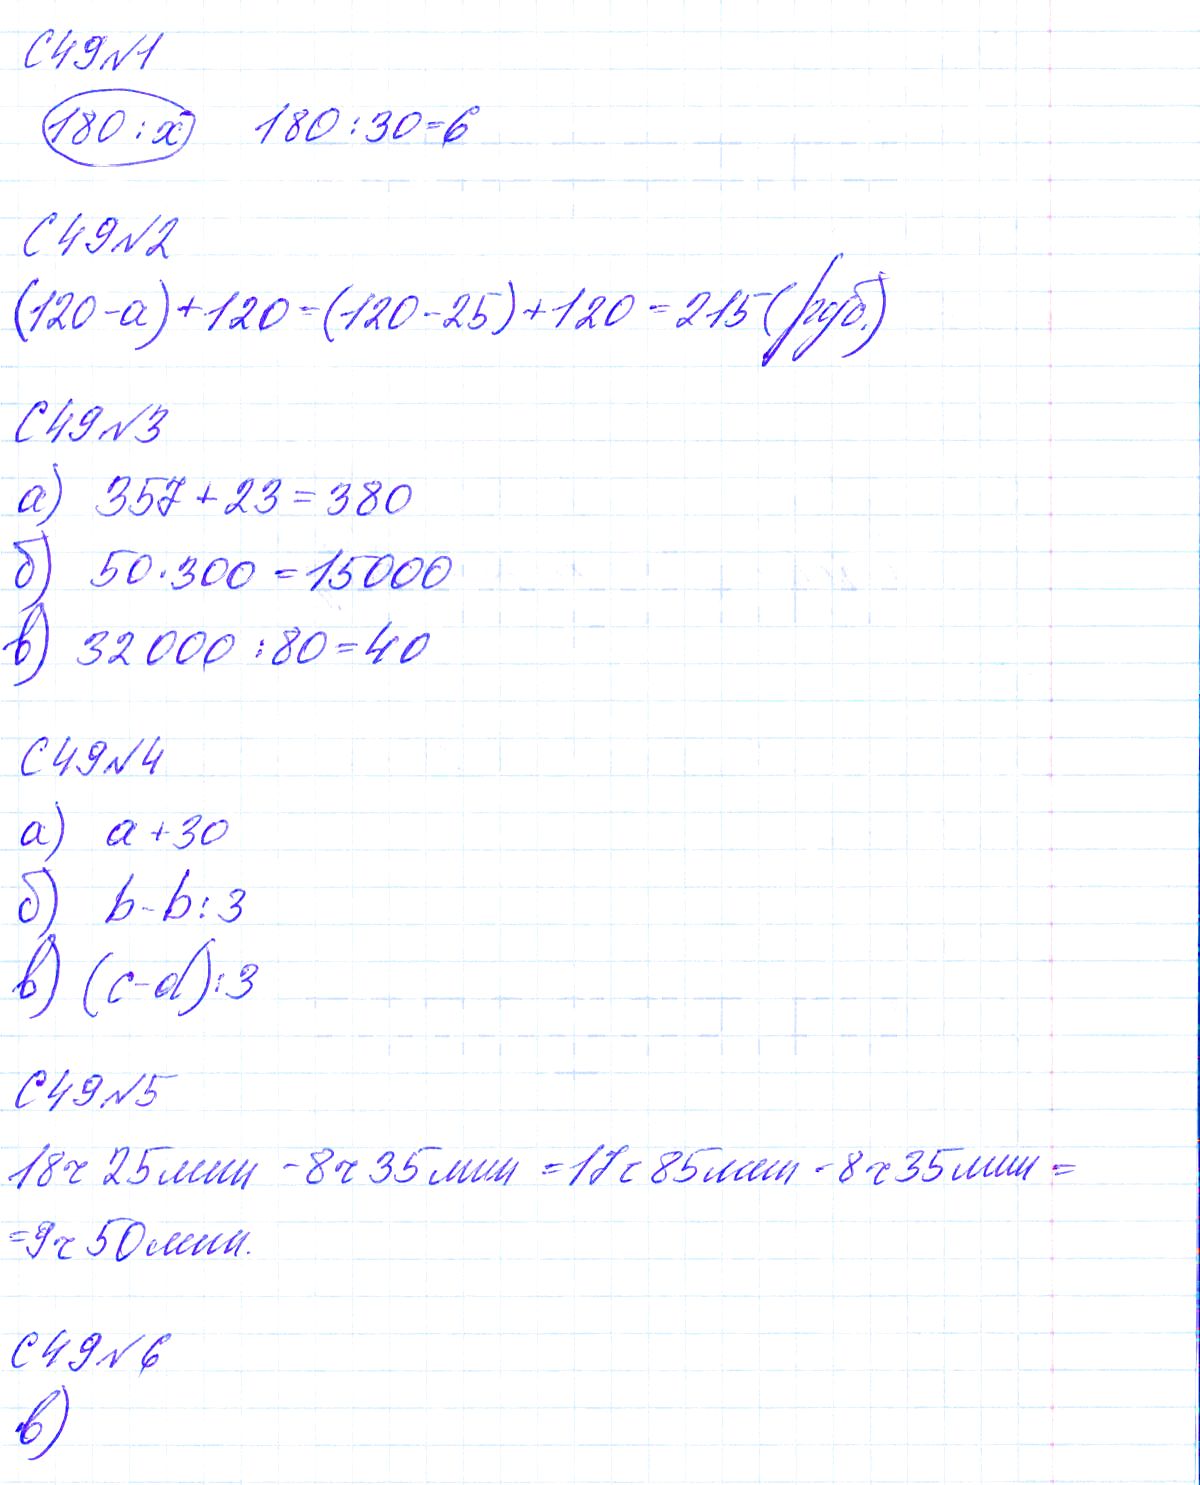 С49№1
180:x 180:30=6
С49№2
(120-a)+120=(120-25)+120=215(руб.)
С49№3
а) 357+23=380
б) 50·300=15000
в) 32000:80=40
С49№4
а) a+30
б) b-b:3
в) (c-d):3
С49№5
18ч 25мин -8ч 35мин =17ч 85мин -8ч 35мин =
=9ч 50мин.
С49№6
в)